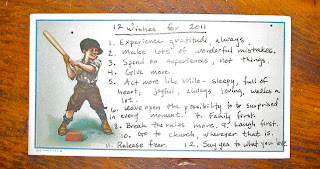 12 Wishes for 2011
1. Experience gratitude, always.
2. Make lots of wonderful mistakes.
3. Spend on experiences, not things.
4. Give more.
5. Act more like Milo - sleepy, full of
heart, joyful, always loving, walks a
lot.
6. Leave open the possibility to be surprised
in every moment. 7. Family first.
8. Break the rules more. 9. Laugh first.
10. Go to church, wherever that is.
11. Release fear. 12. Say yes to what you love.